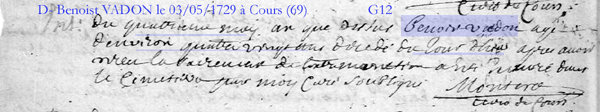 Curé de Cours.
D Benoist VADON le 03/05/1729 à Cours (69) G12
du quattrieme may an que dessus Benoist vadon agé
d'environ quattre vingt ans decedé du jour d'hier apres avoir
receu le sacrement de a été enterré dans
le Cimetiere par moy Curé soubsigné Montere
Curé de Cours